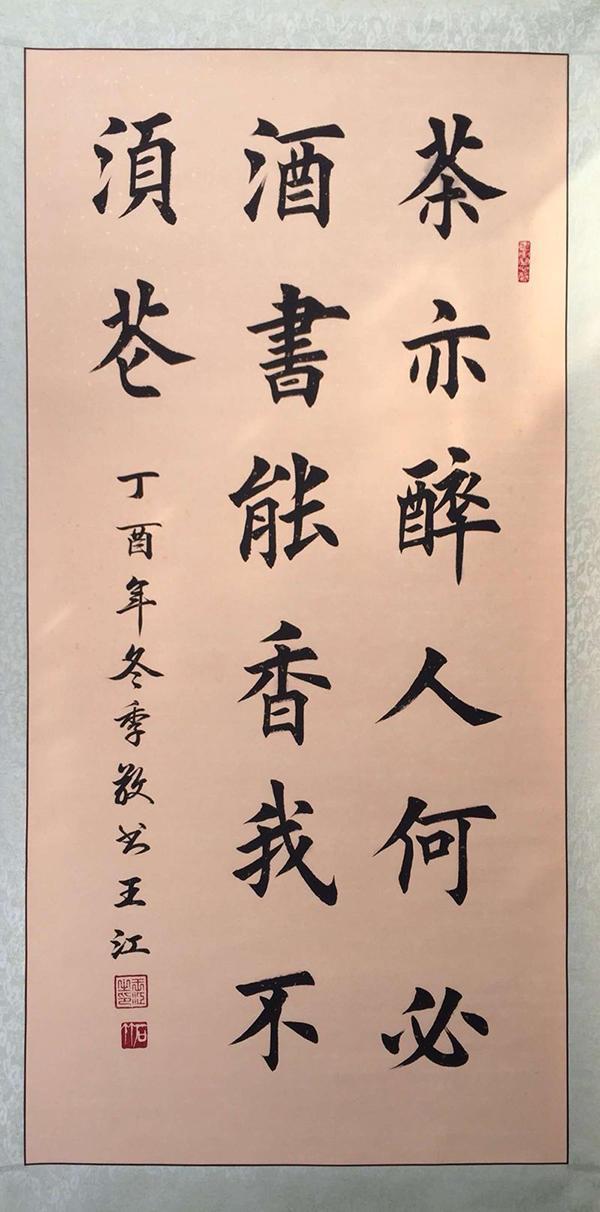 茶亦醉人何必
酒書能香我不
湏芲
丁酉年冬季敬书王江